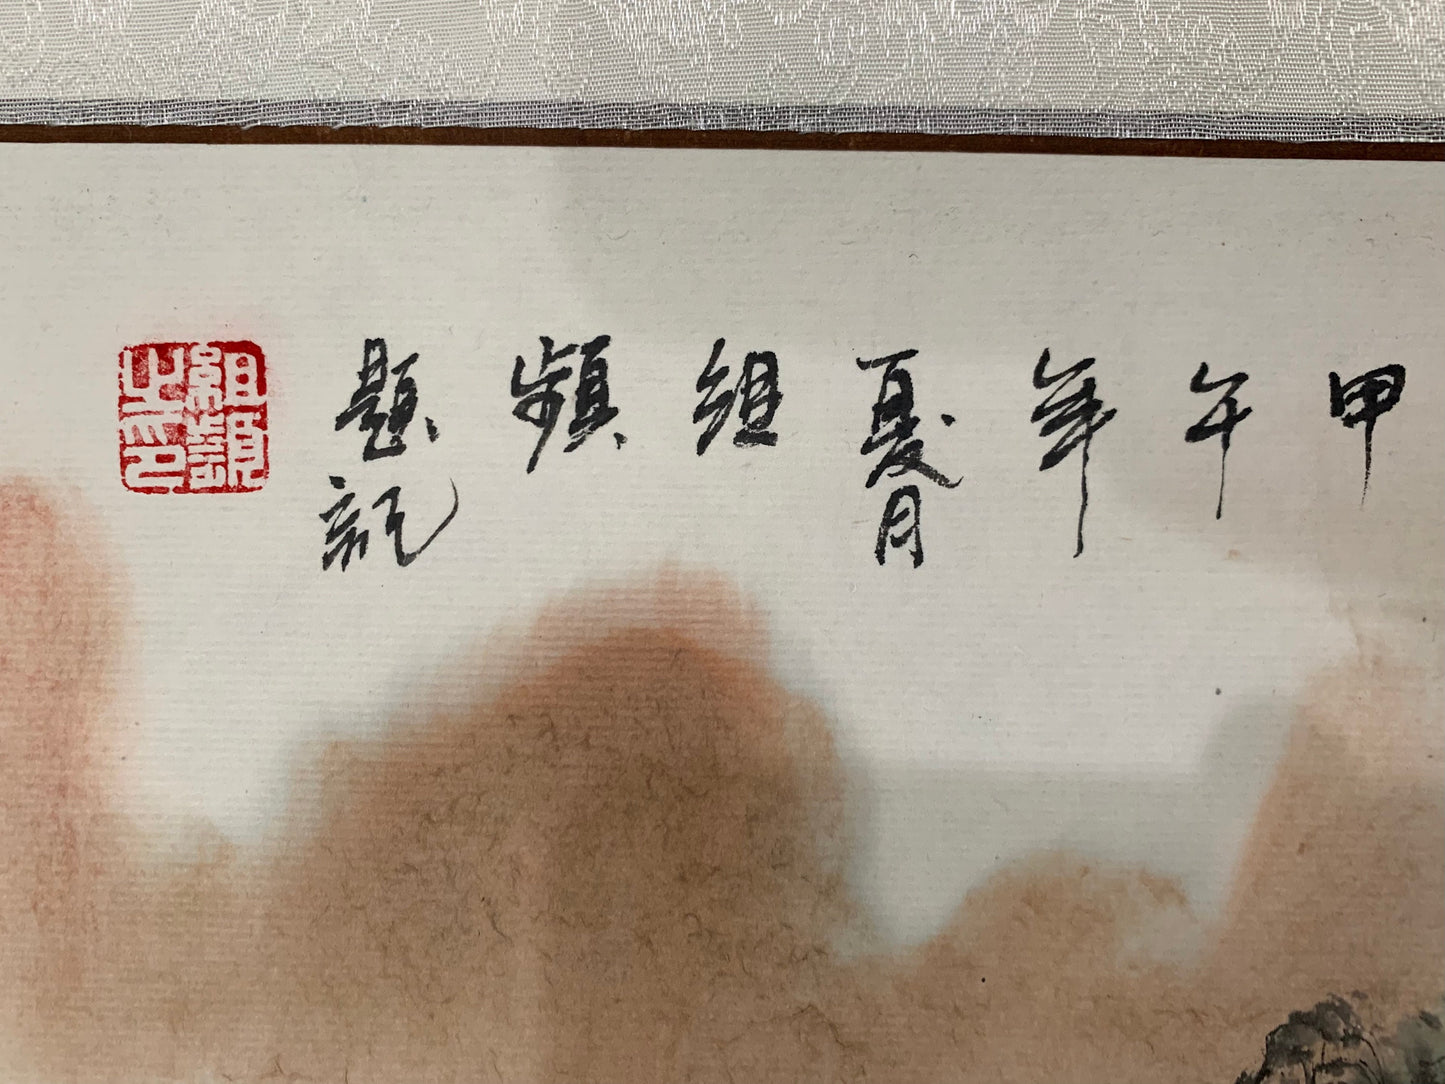 甲午年夏月組頻題記
組頻之印